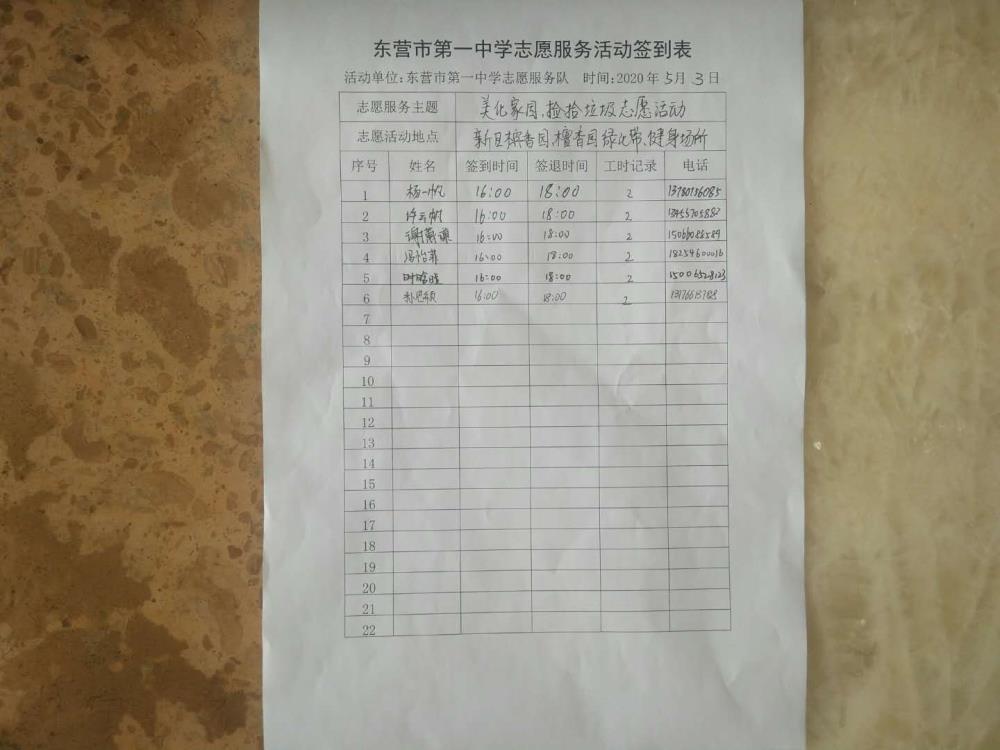 东营市第一中学志愿服务活动签到表
活动单位:东营市第一中学志愿服务队 时间:2020年5月3日
志愿服务主题 美化家园,捡拾垃圾志愿活动
志愿活动地点 新旦槟香园,檀香园绿化带、健身场所
序号 姓名 签到时间 签退时间 工时记录 电话
1 杨一帆 16:00 18:00 2
2 16:00 18:00 2
3 16:00 18:00 2 15066086589
4 冯怡菲 16:00 18:00 2 18254600016
5 16:00 18:00 2 15006528123
6 16:00 18:00 2
7
8
9
10
11
12
13
14
15
16
17
18
19
20
21
22